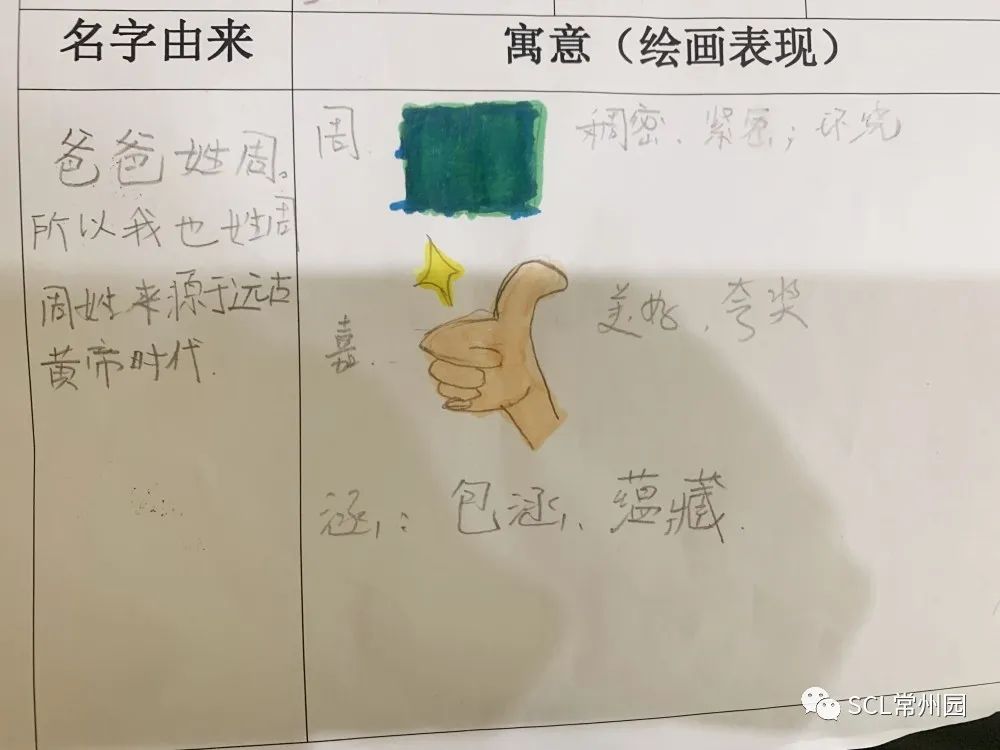 名字由来
寓意（绘画表现）
爸爸姓周。
所以我也姓周
周姓来源于远古
黄帝时代.
周.
稠密、紧密；环绕
嘉.
美好、夸奖
涵：包涵、蕴藏.
SCL常州园